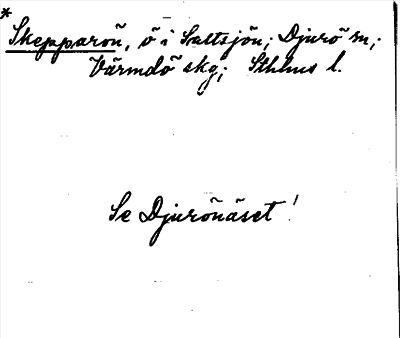 * Skepparön, ö i Saltsjön; Djurö sn;
Värmdö skg; Sthlms l.
Se Djurönäset!